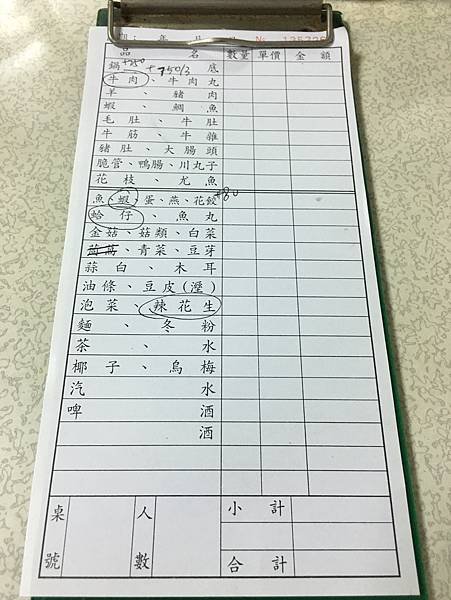 期: 年 月 日 № 125226
品 名 數量 單價 金 額
鍋 底
牛肉、牛肉丸
羊、豬肉
蝦、鯛魚
毛肚、牛肚
牛筋、牛雜
豬肚、大腸頭
脆管、鴨腸、川丸子
花枝、尤魚
魚、蝦、蛋、燕、花餃 +80
蛤仔、魚丸
金菇、菇類、白菜
茼蒿、青菜、豆芽
蒜白、木耳
油條、豆皮(溼)
泡菜、辣花生
麵、冬粉
茶、水
椰子、烏梅
汽水
啤酒
酒
桌號 人數 小計
合計